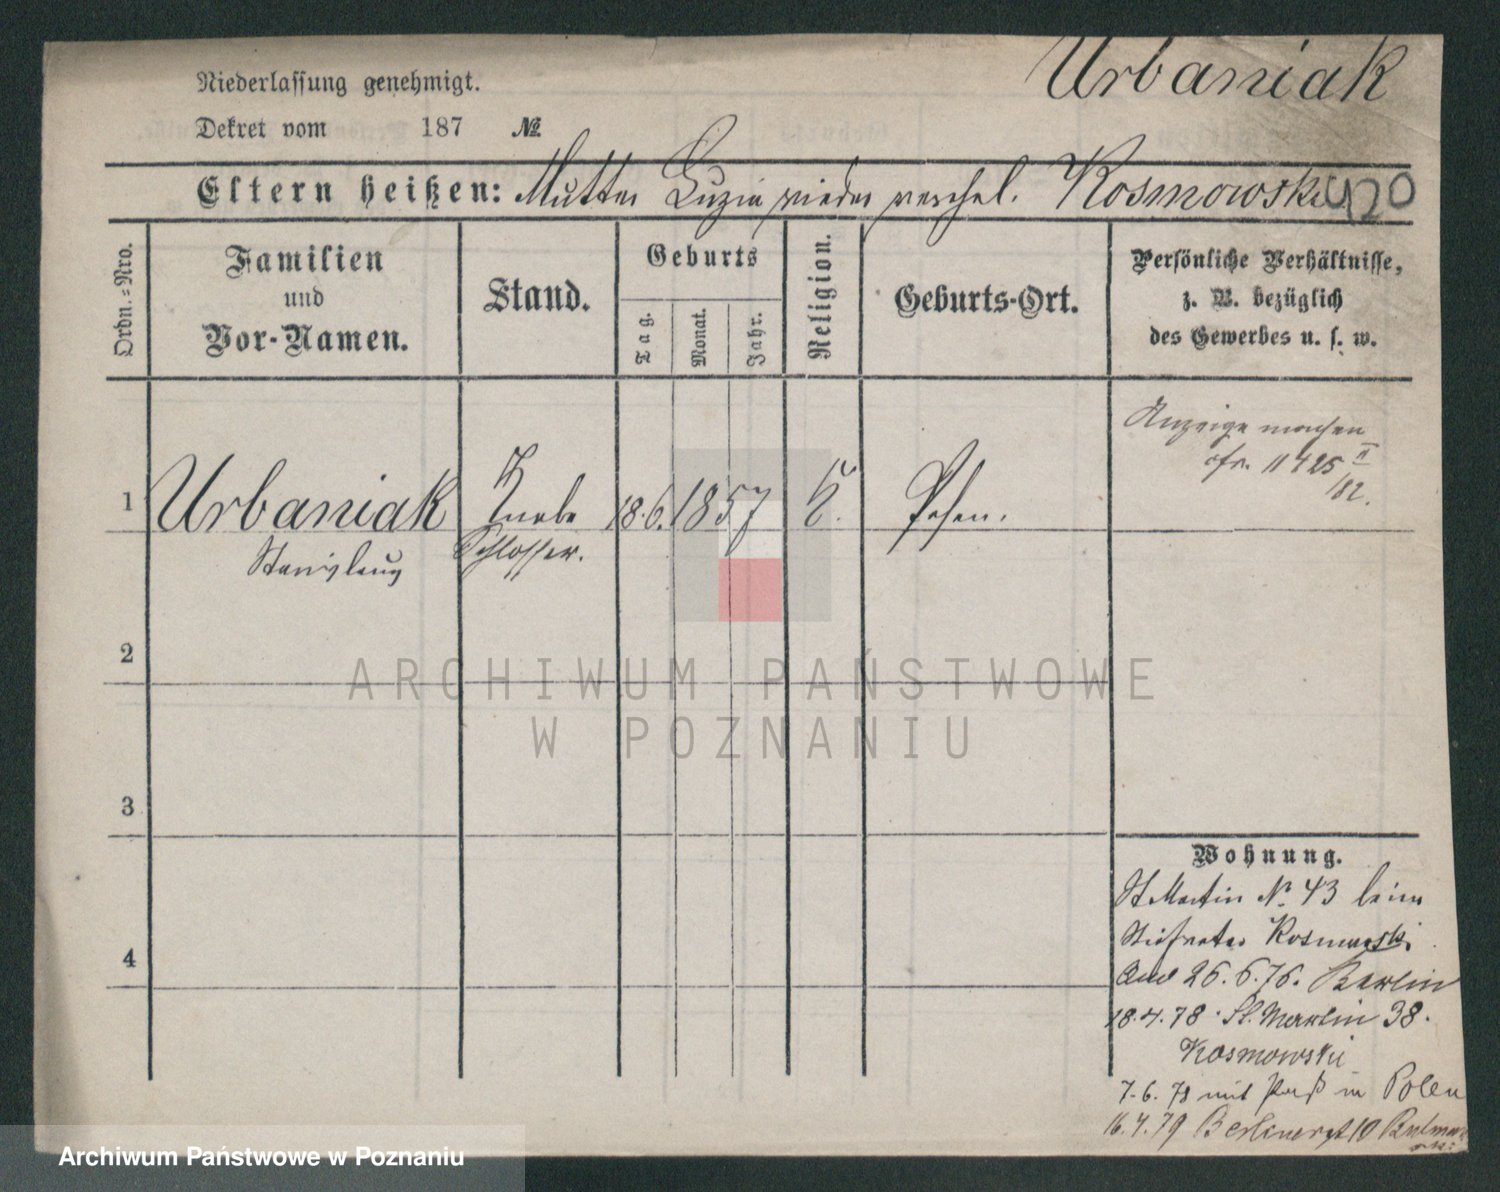 Urbaniak
Niederlassung genehmigt.
Dekret vom 187 №
Eltern heißen: Mutter Luzia wieder verehel. Kosmowska
420
Ordn.-Nro.
Familien
und
Vor-Namen.
Stand.
Geburts
Tag.
Monat.
Jahr.
Religion.
Geburts-Ort.
Persönliche Verhältnisse,
z. B. bezüglich
des Gewerbes u. s. w.
Anzeige machen
cfr. 11425 II
/82.
1 Urbaniak Knabe 18. 6. 1857 K. Posen.
Stanislaus Schlosser.
2
3
4
Wohnung.
St. Martin No. 43 beim
Stiefvater Kosmowski.
26. 6. 76. Berlin
18. 4. 78 St. Martin 38.
Kosmowski
7. 6. 78 mit Paß in Polen
16. 4. 79 10
ARCHIWUM PAŃSTWOWE
W POZNANIU
Archiwum Państwowe w Poznaniu